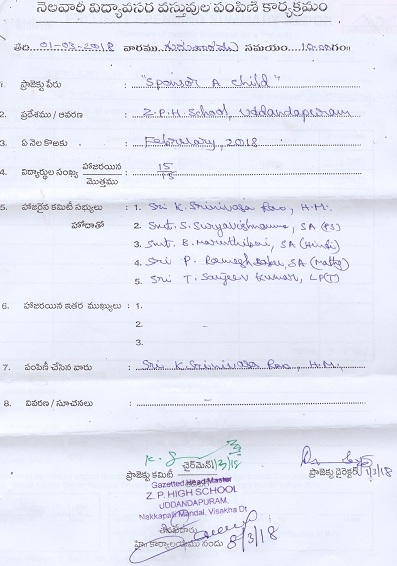 నెలవారీ విద్యావసర వస్తువుల పంపిణీ కార్యక్రమం
తేది....01-03-2018 వారము..గురువారము సమయం...10.00గం॥
1. ప్రాజెక్టు పేరు : "Sponsor A child"
2. ప్రదేశము / ఆవరణ : Z.P.H School, Uddandapuram
3. ఏ నెల కొఱకు : February, 2018
4. విద్యార్థుల సంఖ్య హాజరయిన / మొత్తము : 15/15
5. హాజరైన కమిటీ సభ్యులు : 1. Sri K. Srinivasa Rao, H.M.
హోదాతో 2. Smt. S. Suryavishnamma, SA (PS)
3. Smt. B. Maruthibai, SA (Hindi)
4. Sri P. Ramesh Babu, SA (Maths)
5. Sri T. Sanjeev Kumar, LP(T)
6. హాజరయిన ఇతర ముఖ్యులు : 1.
2.
3.
7. పంపిణీ చేసిన వారు : Sri K. Srinivasa Rao, H.M.,
8. వివరణ / సూచనలు :
ప్రాజెక్టు కమిటీ చైర్‌మెన్ 1/3/18 ప్రాజెక్టు డైరెక్టర్ 1/3/18
Gazetted Head Master
Z. P. HIGH SCHOOL
UDDANDAPURAM,
Nakkapalli Mandal, Visakha Dt
హై కార్యాలయము నందు 8/3/18